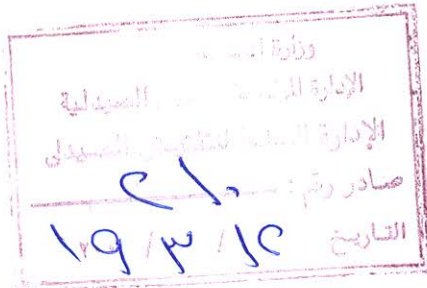 وزارة
الإدارة الصيدلية
الإدارة العامة للتفتيش الصيدلى
صادر رقم : ٢١٠
التاريخ ١٢ / ٣ / ١٩